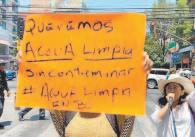 QUEREMOS
AGUA LIMPIA
Sin contaminar
# AGUA LIMPIA
EN